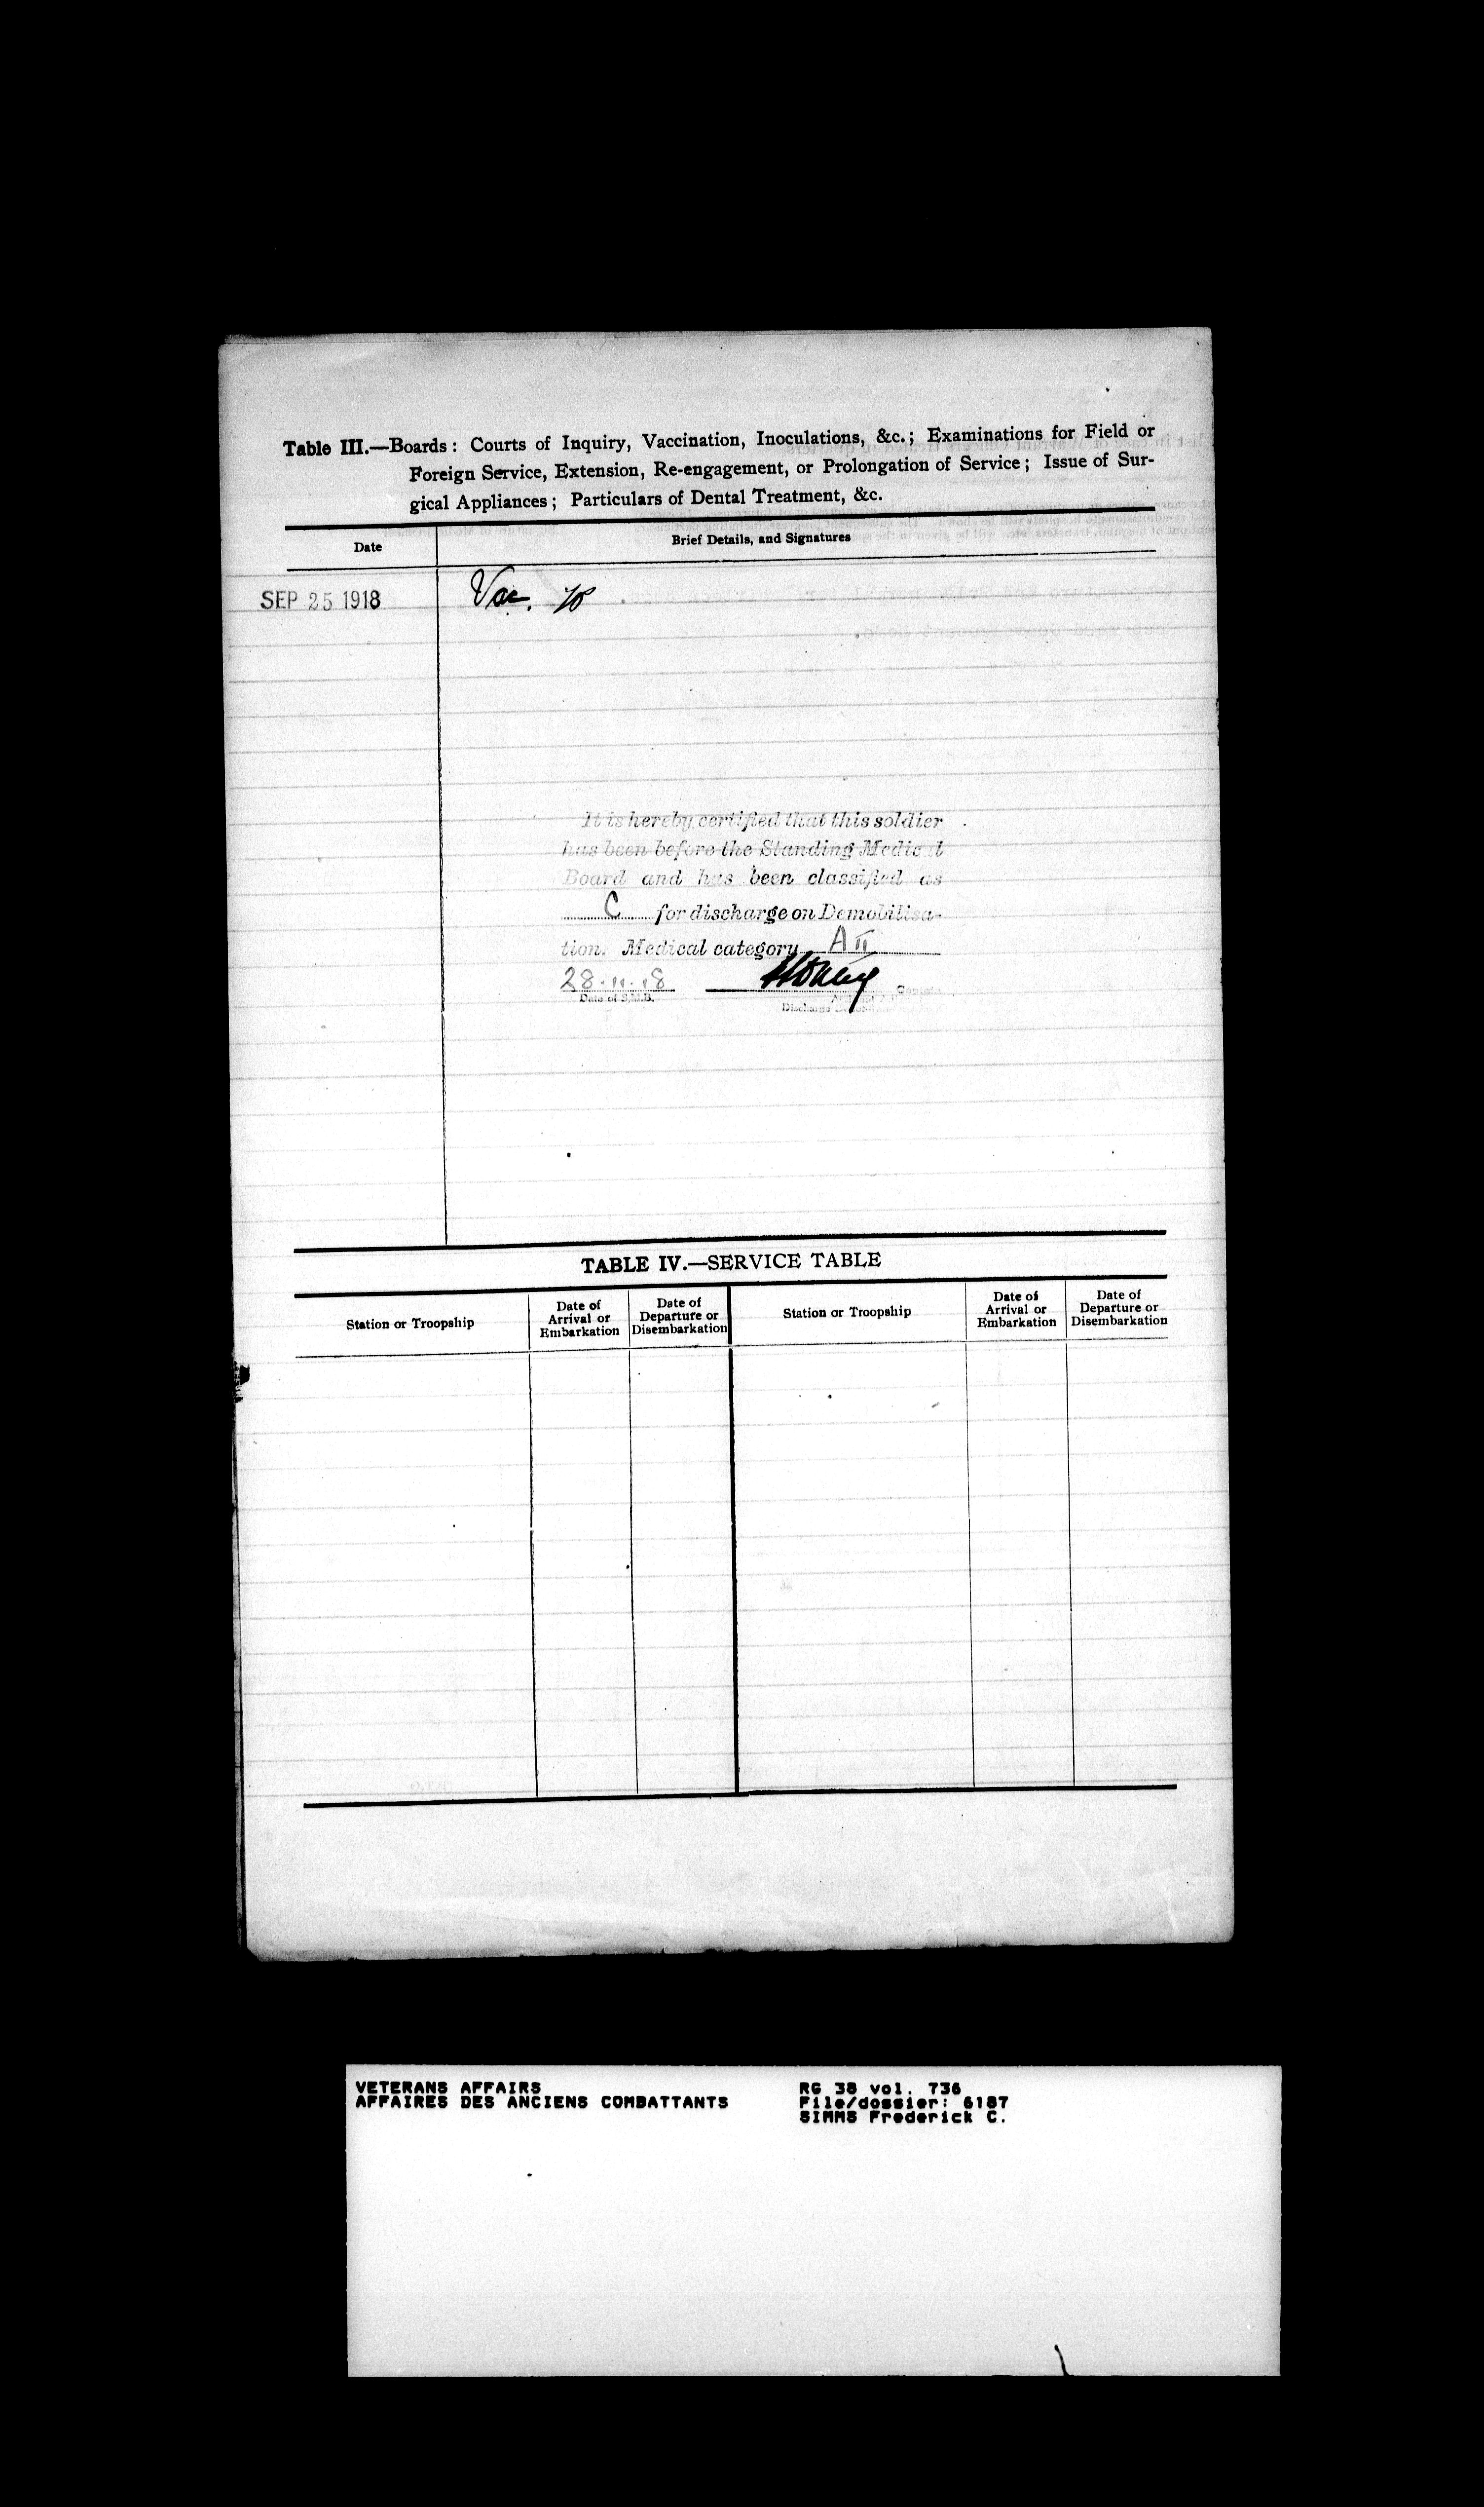 Table III.—Boards: Courts of Inquiry, Vaccination, Inoculations, &c.; Examinations for Field or
Foreign Service, Extension, Re-engagement, or Prolongation of Service; Issue of Sur-
gical Appliances; Particulars of Dental Treatment, &c.
Date Brief Details, and Signatures
SEP 25 1918 Vac.
It is hereby certified that this soldier
has been before the Standing Medical
Board and has been classified as
C for discharge on Demobilisa-
tion. Medical category A II
28.11.18
Date of S.M.B.
Discharge
TABLE IV.—SERVICE TABLE
Station or Troopship Date of Arrival or Embarkation Date of Departure or Disembarkation Station or Troopship Date of Arrival or Embarkation Date of Departure or Disembarkation
VETERANS AFFAIRS RG 38 vol. 736
AFFAIRES DES ANCIENS COMBATTANTS File/dossier: 6187
SIMMS Frederick C.